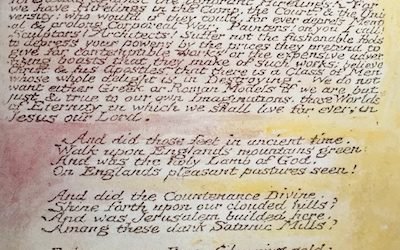 have Hirelings in the Camp, the Court, & the Uni
versity: who would if they could, for ever depress Men
tal & prolong Corporeal War. Painters! on you I call!
Sculptors! Architects! Suffer not the fashionable Fools
to depress your powers by the prices they pretend to
give for contemptible works or the expensive adver
tizing boasts that they make of such works; believe
Christ & his Apostles that there is a Class of Men
whose whole delight is in Destroying. We do not
want either Greek or Roman Models if we are but
just & true to our own Imaginations, those Worlds
of Eternity in which we shall live for ever; in
Jesus our Lord.
And did those feet in ancient time,
Walk upon Englands mountains green:
And was the holy Lamb of God,
On Englands pleasant pastures seen!
And did the Countenance Divine,
Shine forth upon our clouded hills?
And was Jerusalem builded here,
Among these dark Satanic Mills?